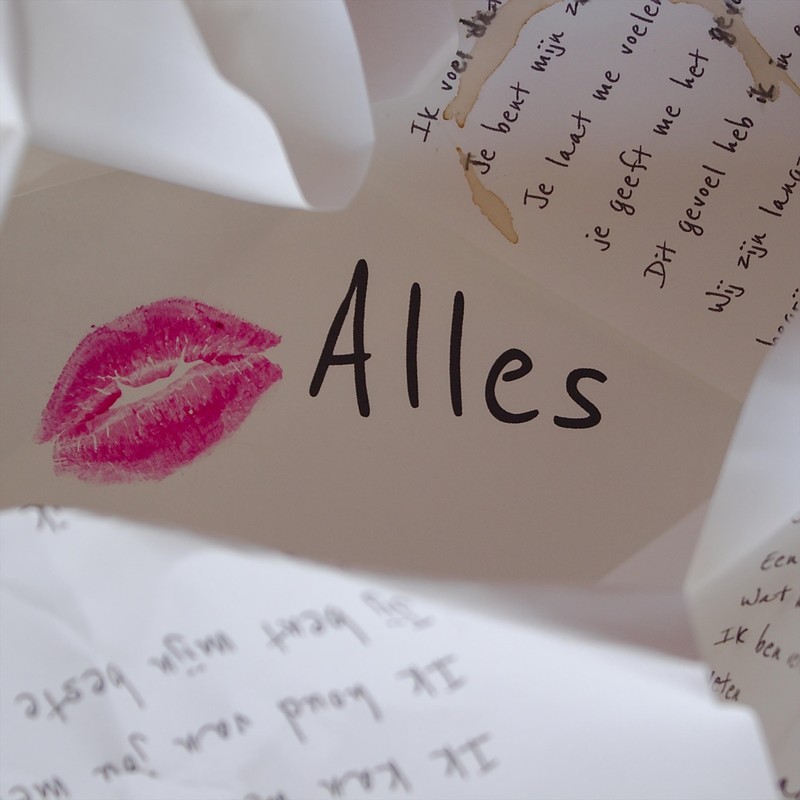 Ik voel dat
Je bent mijn
Je laat me voelen
je geeft me het
Dit gevoel heb ik in
Wij zijn
Alles
Jij bent mijn beste
Ik houd van jou
Ik kan
Een
Wat
Ik ben